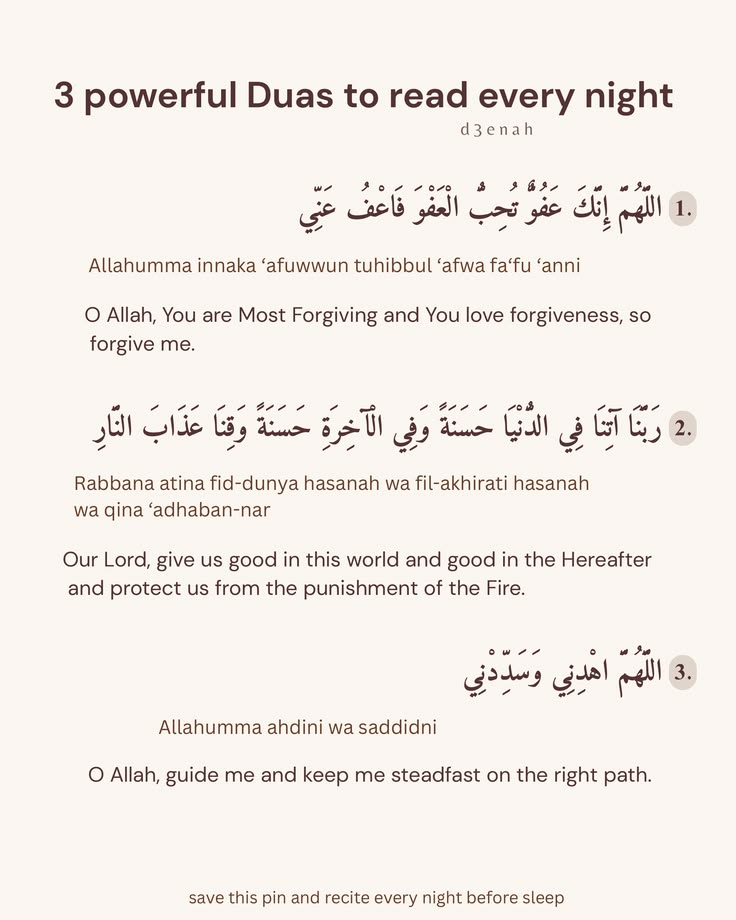 3 powerful Duas to read every night
d3enah
1. اللّٰهُمَّ إِنَّكَ عَفُوٌّ تُحِبُّ الْعَفْوَ فَاعْفُ عَنِّي
Allahumma innaka ‘afuwwun tuhibbul ‘afwa fa‘fu ‘anni
O Allah, You are Most Forgiving and You love forgiveness, so
forgive me.
2. رَبَّنَا آتِنَا فِي الدُّنْيَا حَسَنَةً وَفِي الْآخِرَةِ حَسَنَةً وَقِنَا عَذَابَ النَّارِ
Rabbana atina fid-dunya hasanah wa fil-akhirati hasanah
wa qina ‘adhaban-nar
Our Lord, give us good in this world and good in the Hereafter
and protect us from the punishment of the Fire.
3. اللّٰهُمَّ اهْدِنِي وَسَدِّدْنِي
Allahumma ahdini wa saddidni
O Allah, guide me and keep me steadfast on the right path.
save this pin and recite every night before sleep